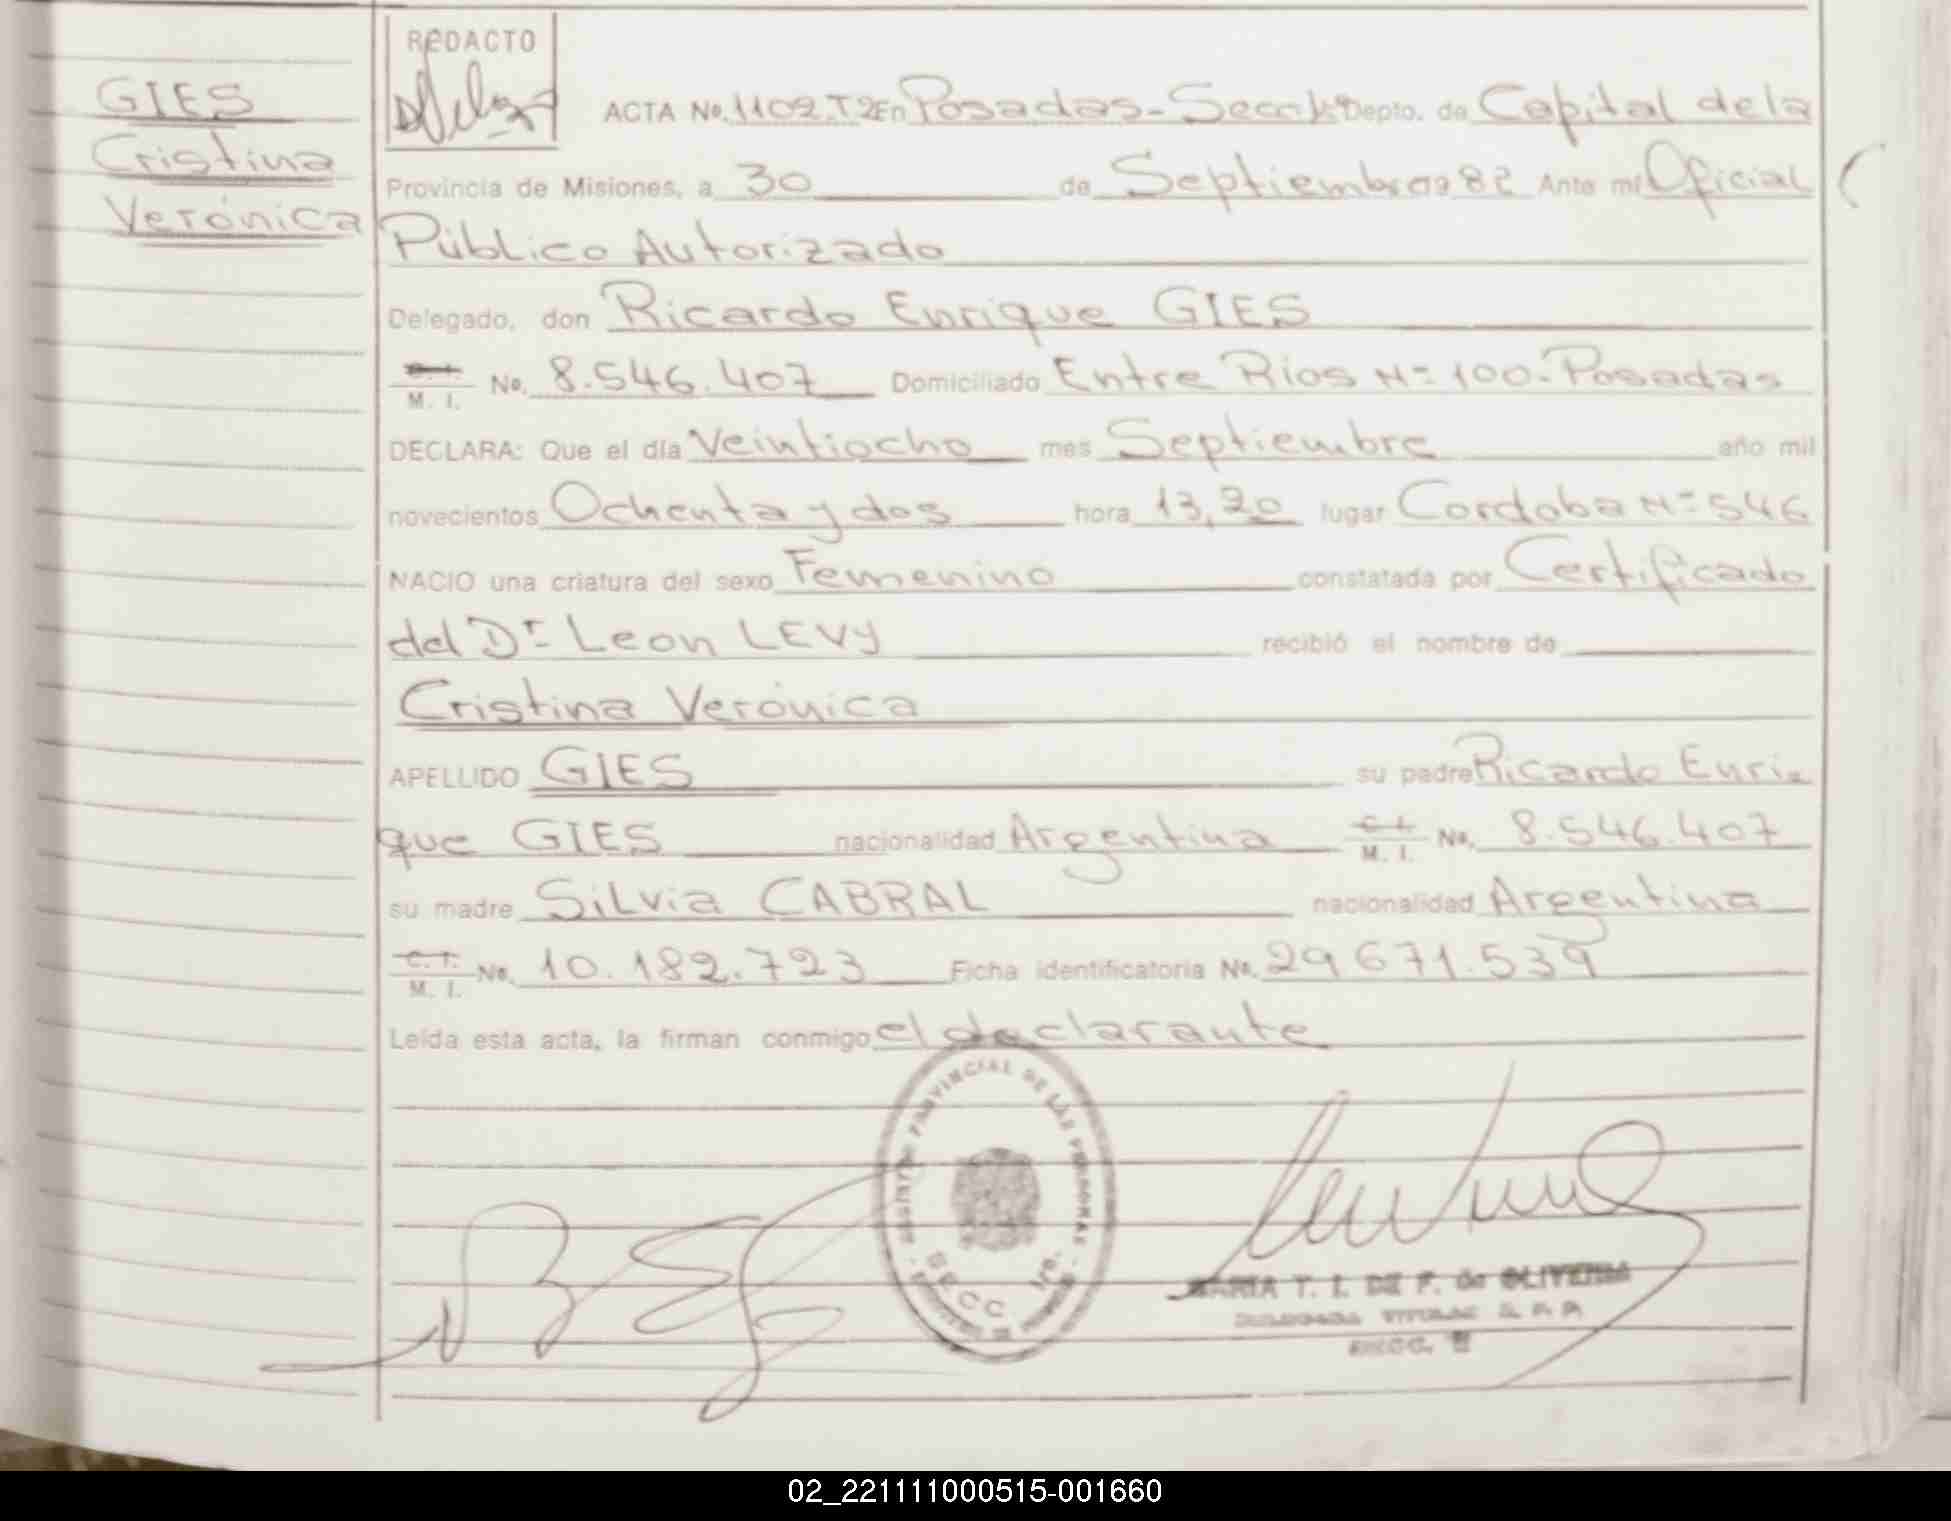 GIES
Cristina
Verónica
REDACTO
ACTA No. 1102.T2 En Posadas-Secc. 1ª Depto. de Capital de la
Provincia de Misiones, a 30 de Septiembre 1982 Ante mí Oficial
Público Autorizado
Delegado, don Ricardo Enrique GIES
C. I.
M. I. No. 8.546.407 Domiciliado Entre Rios Nº 100-Posadas
DECLARA: Que el día Veintiocho mes Septiembre año mil
novecientos Ochenta y dos hora 13,20 lugar Cordoba Nº 546
NACIO una criatura del sexo Femenino constatada por Certificado
del Dr Leon LEVY recibió el nombre de
Cristina Verónica
APELLIDO GIES su padre Ricardo Enri=
que GIES nacionalidad Argentina C. I.
M. I. No. 8.546.407
su madre Silvia CABRAL nacionalidad Argentina
C. I.
M. I. No. 10.182.723 Ficha identificatoria No. 29671.539
Leída esta acta, la firman conmigo el declarante
PROVINCIAL DE LAS PERSONAS
SECC. 1ra.
MARIA T. I. DE F. de OLIVEIRA
SECC.
02_221111000515-001660